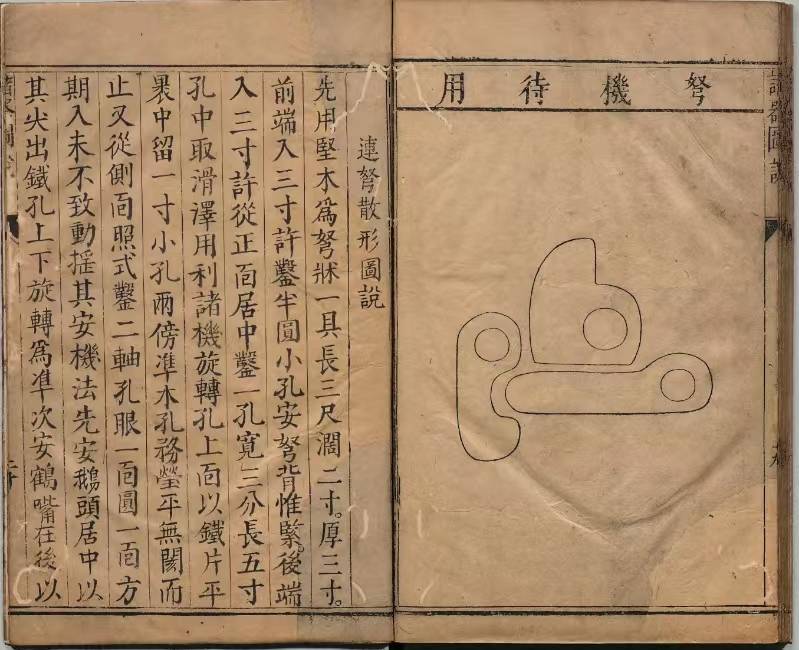 諸器圖說
弩機待用
連弩散形圖說
先用堅木爲弩牀一具長三尺濶二寸。厚三寸。
前端入三寸許鑿半圓小孔安弩背惟緊。後端
入三寸許從正靣居中鑿一孔寬三分長五寸
孔中取滑澤用利諸機旋轉孔上靣以鐵片平
褁中留一寸小孔兩傍凖木孔務瑩平無閡而
止又從側靣照式鑿二軸孔眼一靣圓一靣方
期入未不致動揺其安機法先安鵝頭居中以
其尖出鐵孔上下旋轉爲凖次安鶴嘴在後以